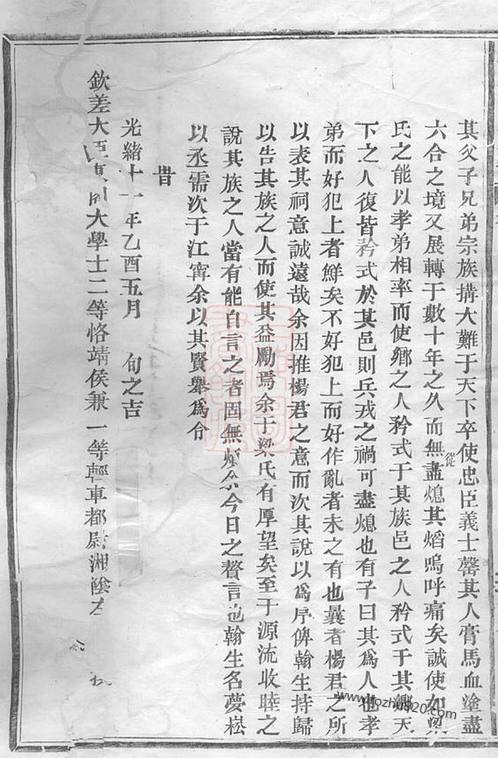 其父子兄弟宗族搆大難于天下卒使忠臣義士罄其人膏馬血塗盡
六合之境又展轉于數十年之久而無從盡熄其熖嗚呼痛矣誠使如梁
氏之能以孝弟相率而使鄉之人矜式于其族邑之人矜式于其鄉天
下之人復皆矜式於其邑則兵戎之禍可盡熄也有子曰其為人也孝
弟而好犯上者鮮矣不好犯上而好作亂者未之有也曩者楊君之所
以表其祠意誠遠哉余因推楊君之意而次其說以為序俾翰生持歸
以告其族之人而使其益勵焉余于梁氏有厚望矣至于源流收睦之
說其族之人當有能自言之者固無煩余今日之贅言也翰生名夢崧
以丞需次于江寕余以其賢舉為令
昔
光緒十一年乙酉五月 旬之吉
欽差大臣東閣大學士二等恪靖侯兼一等輕車都尉湘陰左